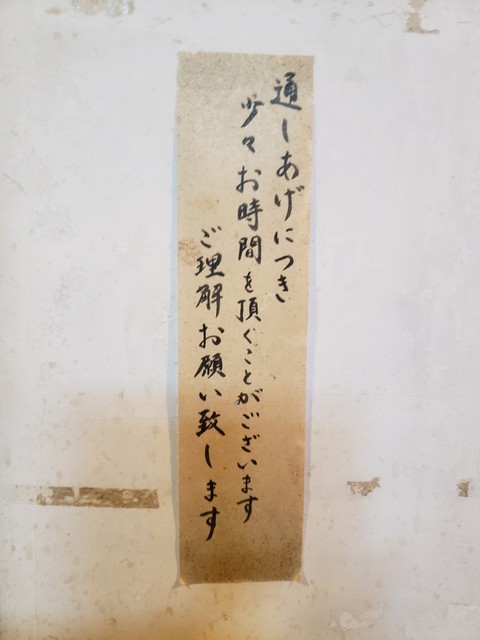 通しあげにつき
少々お時間を頂くことがございます
ご理解お願い致します